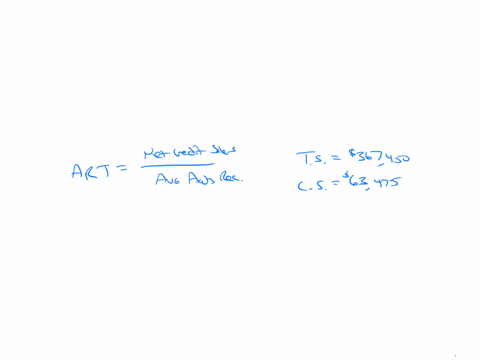 ART = Net credit Sales
Avg Accts Rec.
T.S. = $367,450
C.S. = $63,475